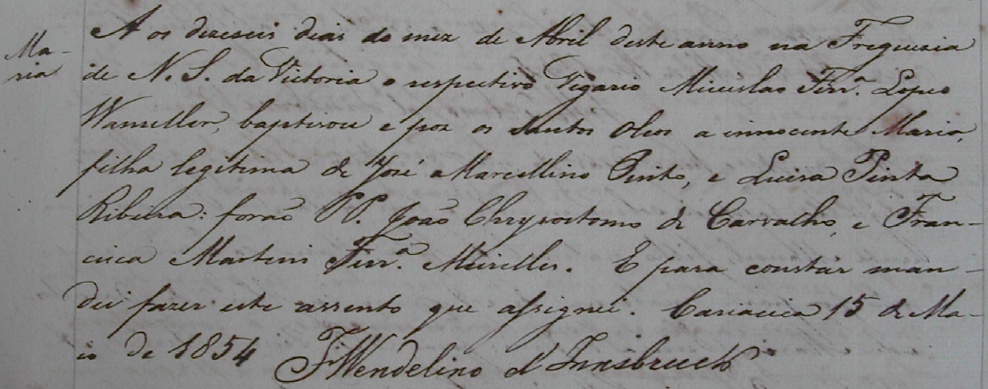 Ma-
ria
A os dezeseis dias do mez de Abril deste anno na Freguezia
de N. S. da Victoria o respectivo Vigario Miceslao Ferr.ª Lopes
Wanzeller, baptisou e poz os Santos Oleos a innocente Maria,
filha legitima de José Marcellino Pinto, e Luisa Pinta
Ribeira: forão PP. João Chrysostomo de Carvalho, e Fran-
cisca Martins Ferr.ª Meirelles. E para constar man-
dei fazer este assento que assignei. Cariacica 15 de Ma-
io de 1854 Fr Wendelino d'Innsbruck